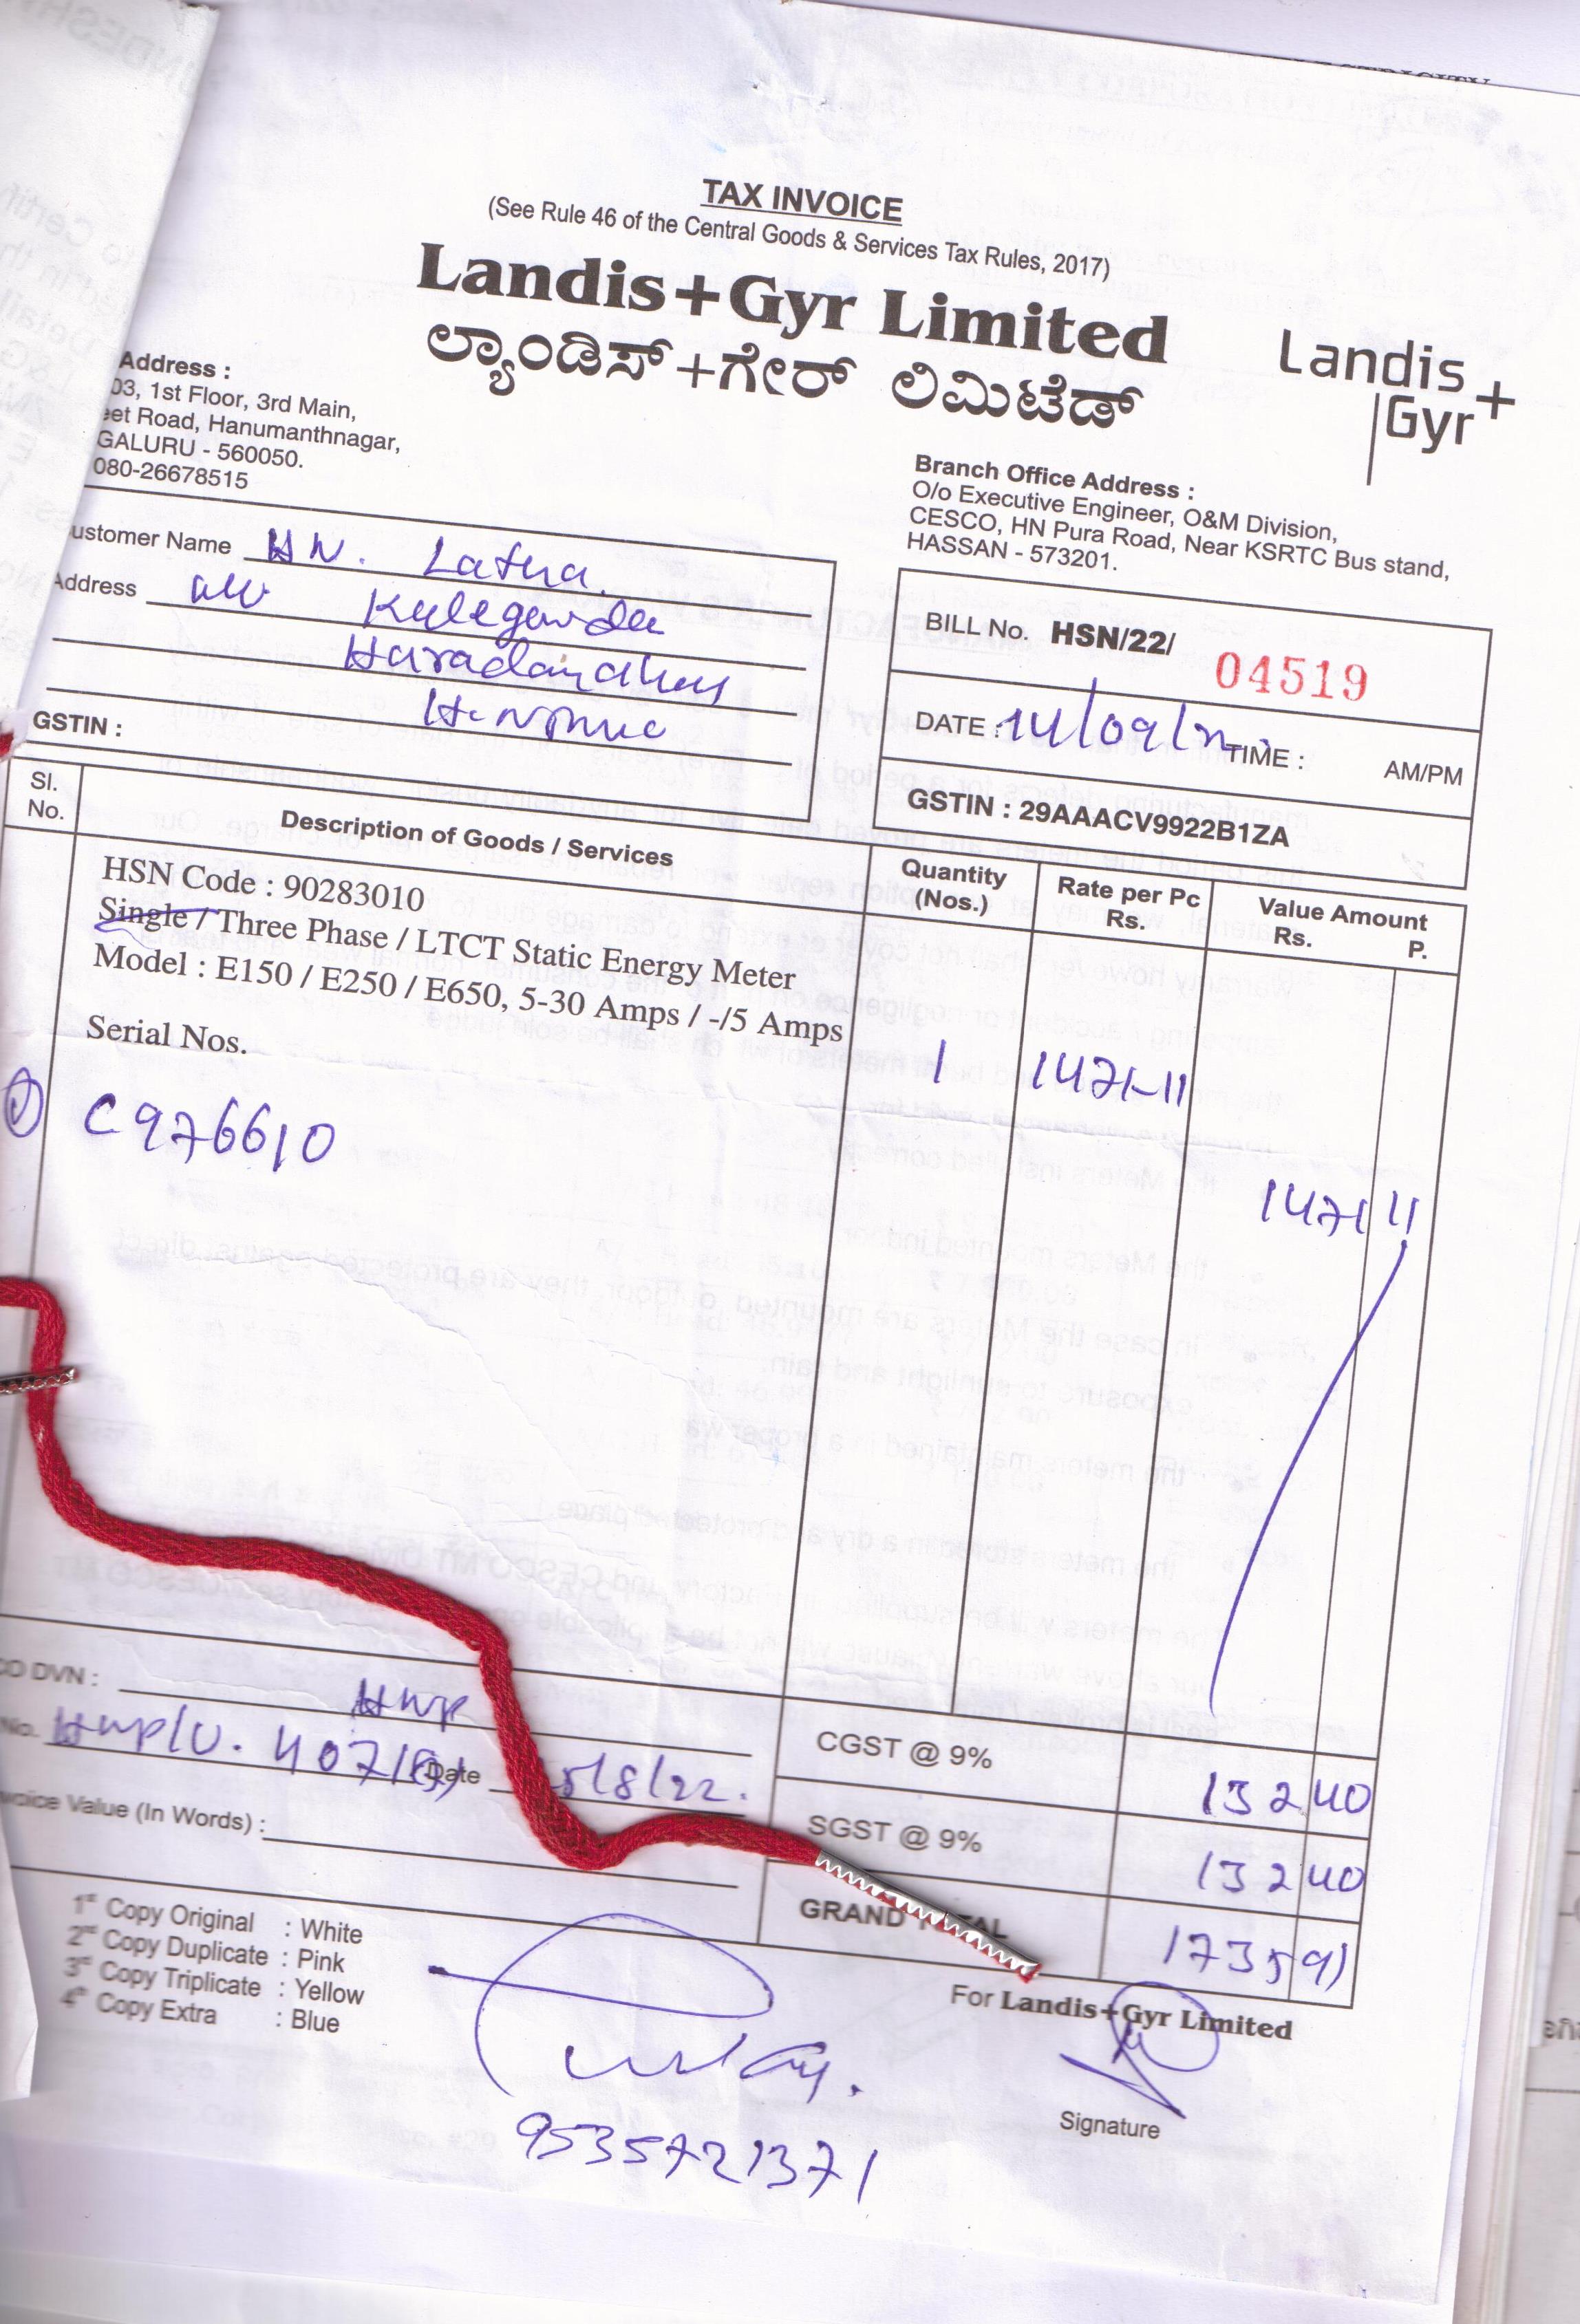 TAX INVOICE
(See Rule 46 of the Central Goods & Services Tax Rules, 2017)
Landis+Gyr Limited
ಲ್ಯಾಂಡಿಸ್+ಗೇರ್ ಲಿಮಿಟೆಡ್
Landis+
Gyr
Address :
03, 1st Floor, 3rd Main,
eet Road, Hanumanthnagar,
GALURU - 560050.
080-26678515
Branch Office Address :
O/o Executive Engineer, O&M Division,
CESCO, HN Pura Road, Near KSRTC Bus stand,
HASSAN - 573201.
ustomer Name HN. Latha
Address Kulegowda
GSTIN :
BILL No. HSN/22/ 04519
DATE : 14/09/ TIME : AM/PM
GSTIN : 29AAACV9922B1ZA
Sl. No. Description of Goods / Services Quantity (Nos.) Rate per Pc Rs. Value Amount Rs. P.
HSN Code : 90283010
Single / Three Phase / LTCT Static Energy Meter
Model : E150 / E250 / E650, 5-30 Amps / -/5 Amps
Serial Nos.
1 1471-11
C976610
1471 11
CO DVN : HNP
No. HNP/U. 407 Date 5/8/22.
voice Value (In Words) :
CGST @ 9% 132 40
SGST @ 9% 132 40
GRAND TOTAL 1735 91
1st Copy Original : White
2nd Copy Duplicate : Pink
3rd Copy Triplicate : Yellow
4th Copy Extra : Blue
For Landis+Gyr Limited
Signature
9535721371